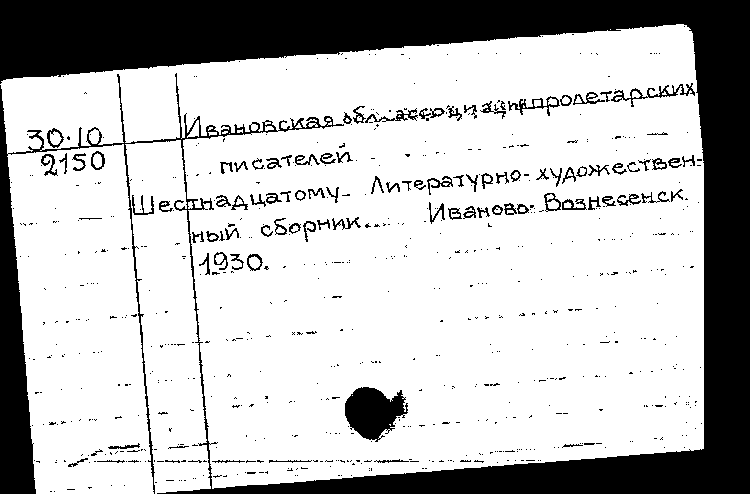 30·10
2150
Ивановская обл. ассоциация пролетарских
писателей
Шестнадцатому. Литературно-художествен-
ный сборник... Иваново-Вознесенск.
1930.